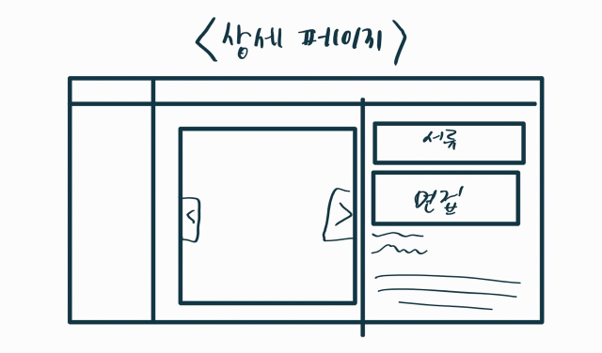 <상세 페이지>
서류
면접
<
>